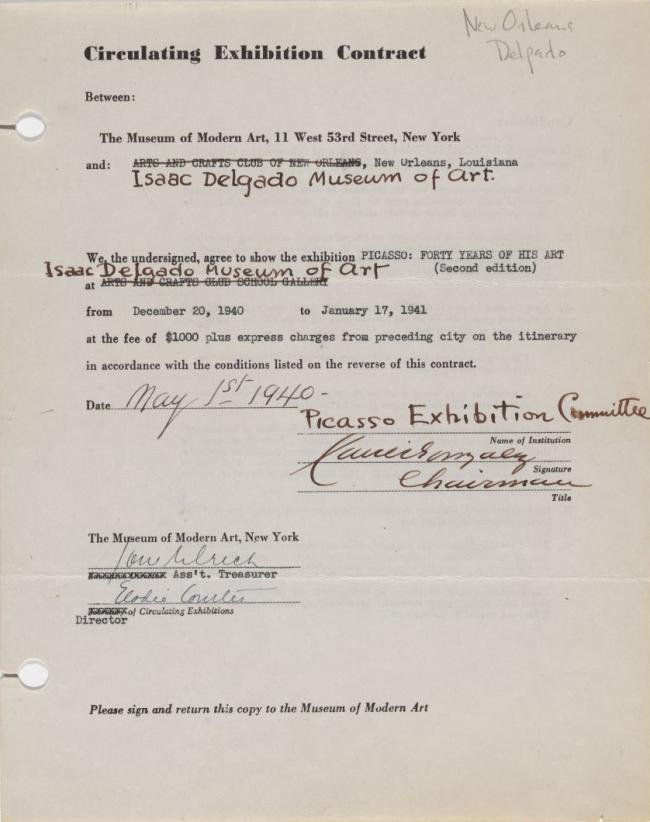 New Orleans
Delgado
Circulating Exhibition Contract
Between:
The Museum of Modern Art, 11 West 53rd Street, New York
and: ARTS AND CRAFTS CLUB OF NEW ORLEANS, New Orleans, Louisiana
Isaac Delgado Museum of Art.
We, the undersigned, agree to show the exhibition PICASSO: FORTY YEARS OF HIS ART
Isaac Delgado Museum of Art (Second edition)
at ARTS AND CRAFTS CLUB SCHOOL GALLERY
from December 20, 1940 to January 17, 1941
at the fee of $1000 plus express charges from preceding city on the itinerary
in accordance with the conditions listed on the reverse of this contract.
Date May 1st 1940-
Picasso Exhibition Committee
Name of Institution
Signature
Chairman
Title
The Museum of Modern Art, New York
Ass't. Treasurer
Elodie Courter
of Circulating Exhibitions
Director
Please sign and return this copy to the Museum of Modern Art